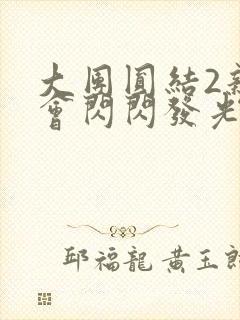 大團圓結2
會閃閃發光
邱福龍 黄玉郎